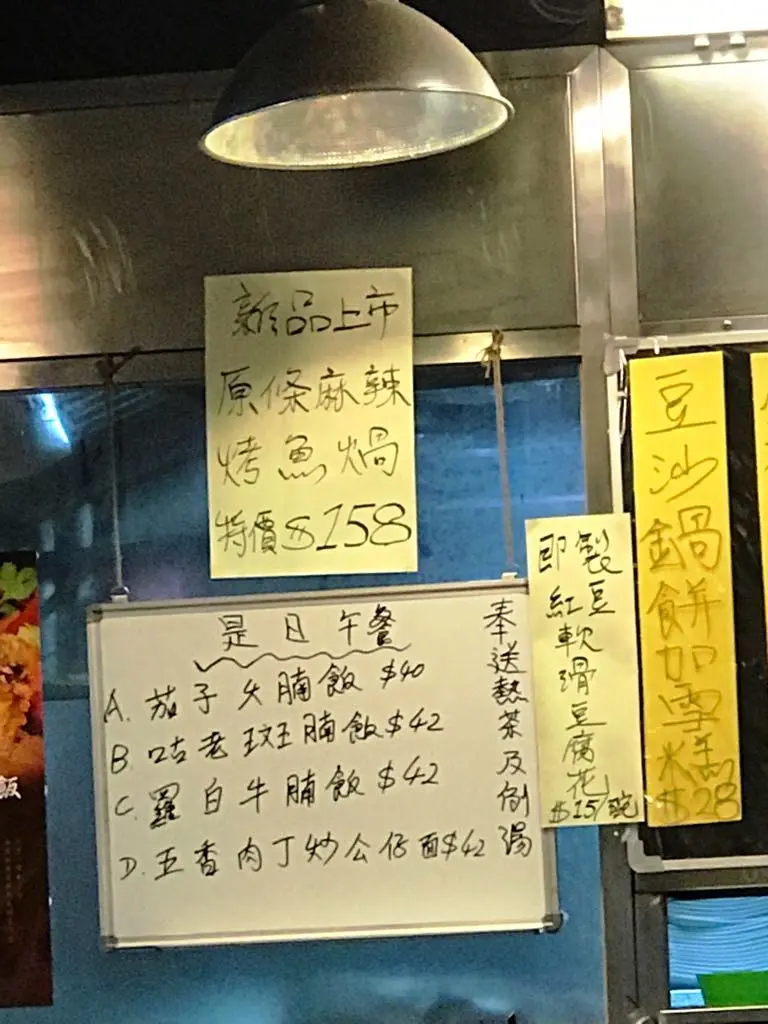 新品上市
原條麻辣
烤魚焗
特價$158
是日午餐
A. 茄子火腩飯 $40
B. 咕老斑腩飯 $42
C. 羅白牛腩飯 $42
D. 五香肉丁炒公仔面 $42
奉送熱茶及例湯
即製
紅豆
軟滑豆腐花
$15/碗
豆沙鍋餅加雪糕
$28
飯